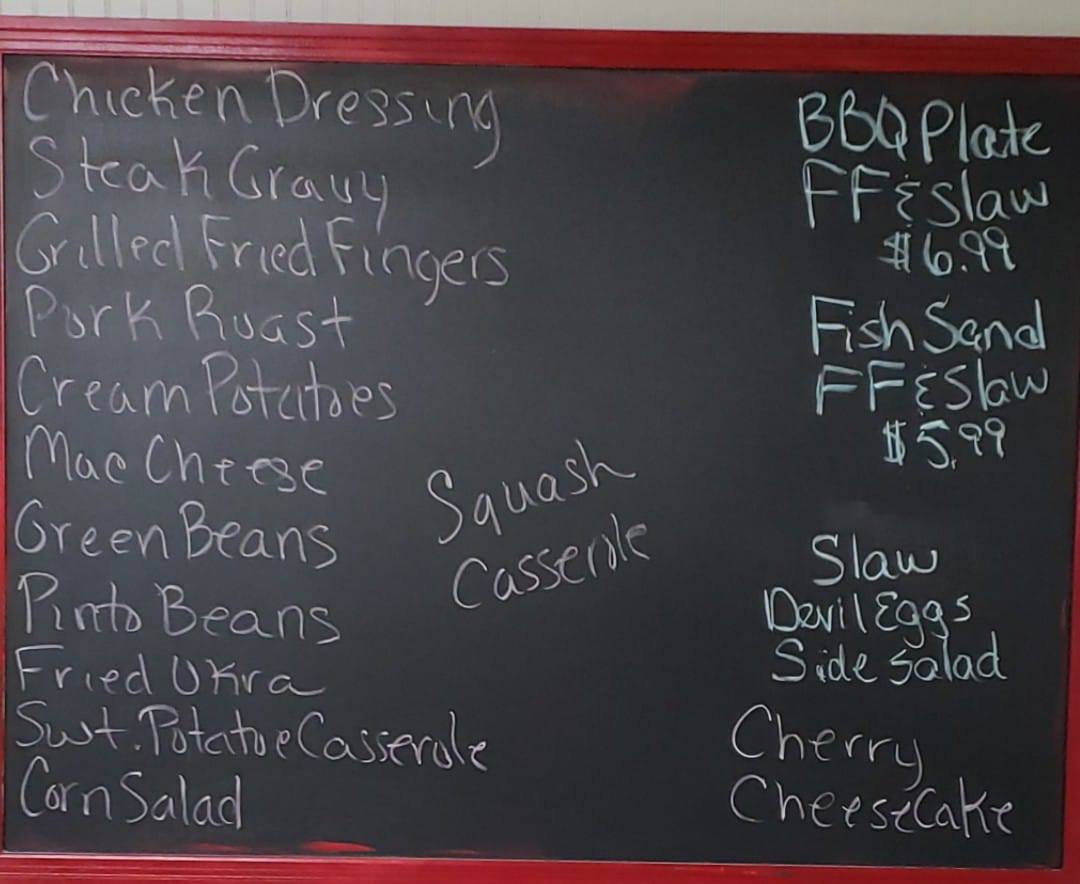 Chicken Dressing
Steak Gravy
Grilled Fried Fingers
Pork Roast
Cream Potatoes
Mac Cheese
Green Beans
Pinto Beans
Fried Okra
Swt. Potatoe Casserole
Corn Salad
Squash
Casserole
BBQ Plate
FF & Slaw
$6.99
Fish Sand
FF & Slaw
$5.99
Slaw
Devil Eggs
Side Salad
Cherry
CheeseCake